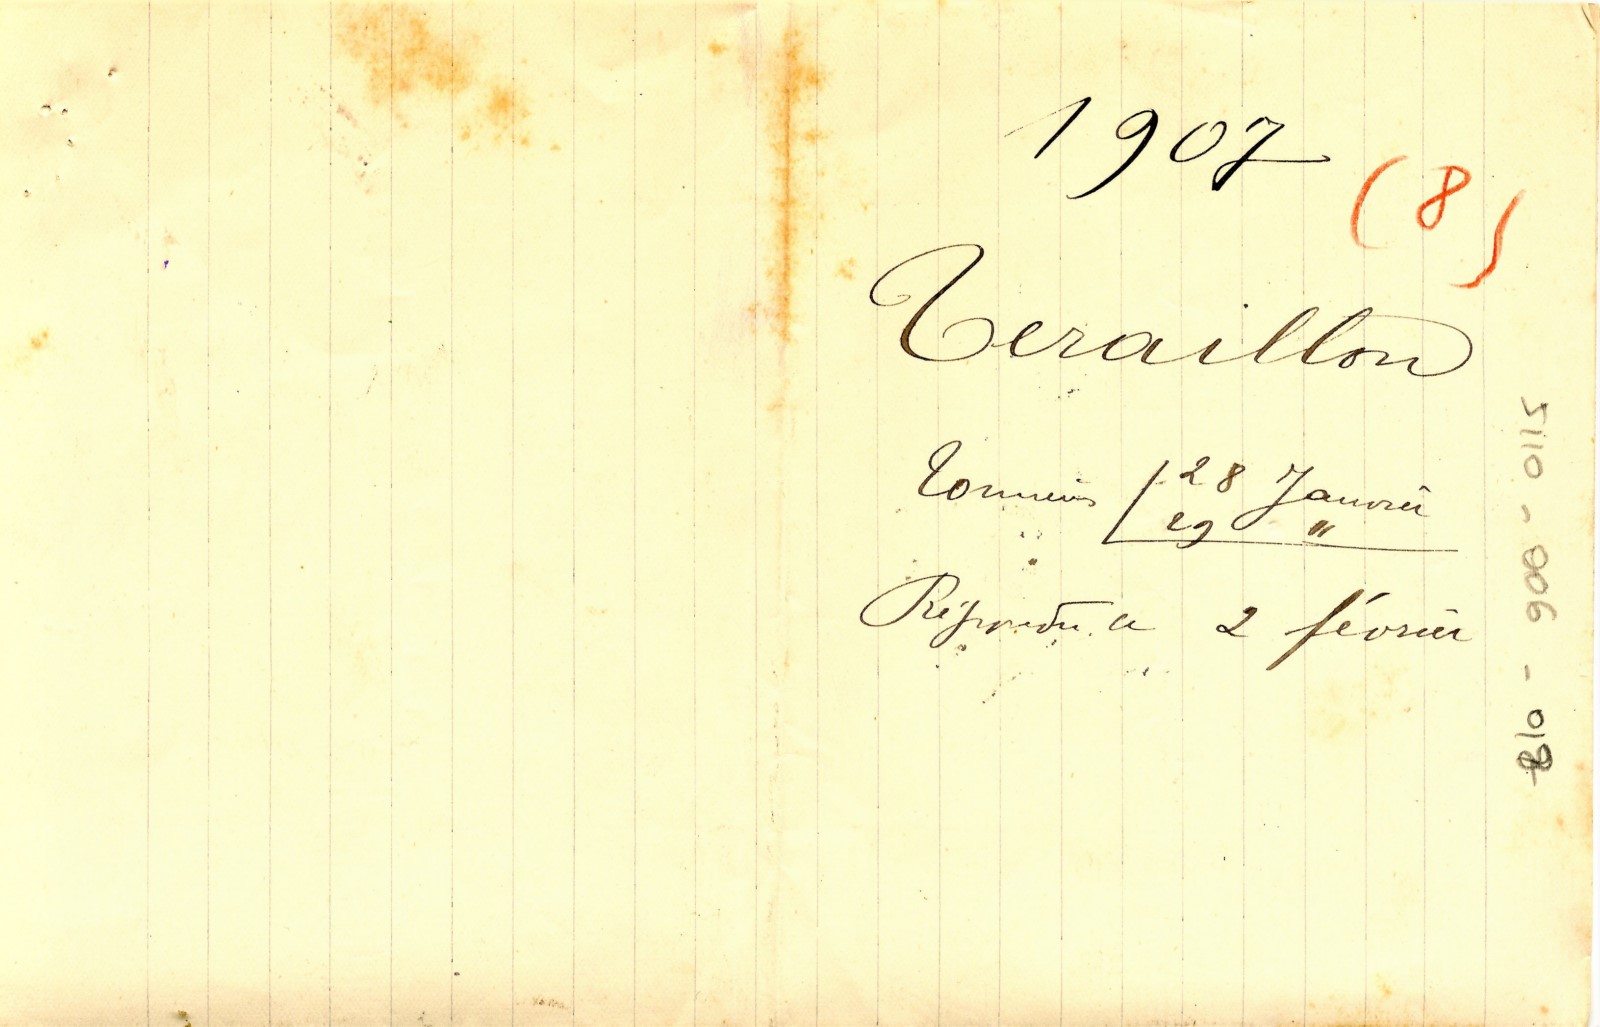 1907
(8)
Teraillon
Tonneins 28 Janvier
29 "
Répondu le 2 février
B10 - 006 - 0115